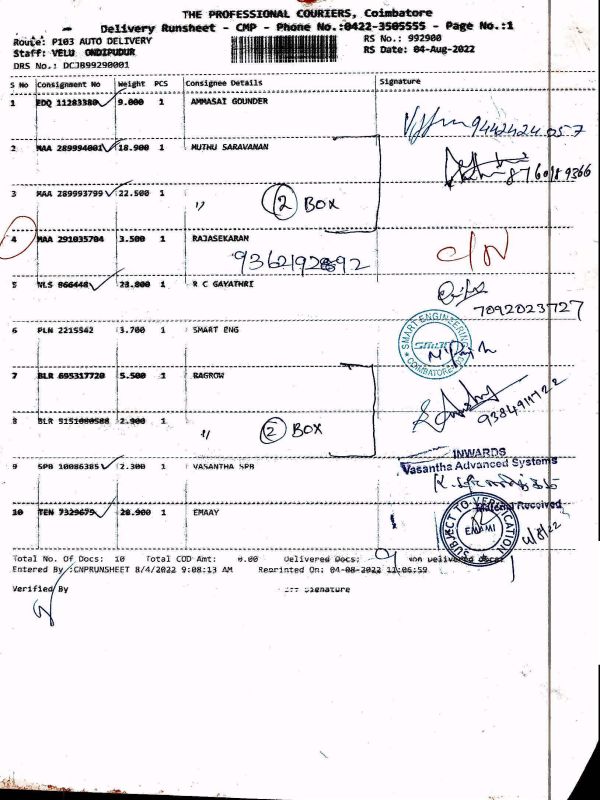 THE PROFESSIONAL COURIERS, Coimbatore
Delivery Runsheet - CMP - Phone No.:0422-3505555 - Page No.:1
Route: P103 AUTO DELIVERY RS No.: 992900
Staff: VELU ONDIPUDUR RS Date: 04-Aug-2022
DRS No.: DCJB99290001
S No Consignment No Weight PCS Consignee Details Signature
1 EDQ 11283380 9.000 1 AMMASAI GOUNDER
9442424057
2 MAA 289994001 18.900 1 MUTHU SARAVANAN
8760189366
3 MAA 289993799 22.500 1 " 2 BOX
4 MAA 291035704 3.500 1 RAJASEKARAN C/N
9362192892
5 NLS 866448 23.800 1 R C GAYATHRI
7092023727
6 PLN 2215542 3.700 1 SMART ENG
SMART ENGINEERING
COIMBATORE
7 BLR 695317720 5.500 1 RAGROW
9384911722
8 BLR 5151080588 2.900 1 " 2 BOX
INWARDS
9 SPB 10086385 2.300 1 VASANTHA SPB Vasantha Advanced Systems
Material Received
10 TEN 7329679 28.900 1 EMAAY
SUBJECT TO VERIFICATION
4/8/22
Total No. Of Docs: 10 Total COD Amt: 0.00 Delivered Docs: 9 Non Delivered Docs: 1
Entered By :CNPRUNSHEET 8/4/2022 9:08:13 AM Reprinted On: 04-08-2022 11:06:59
Verified By Signature